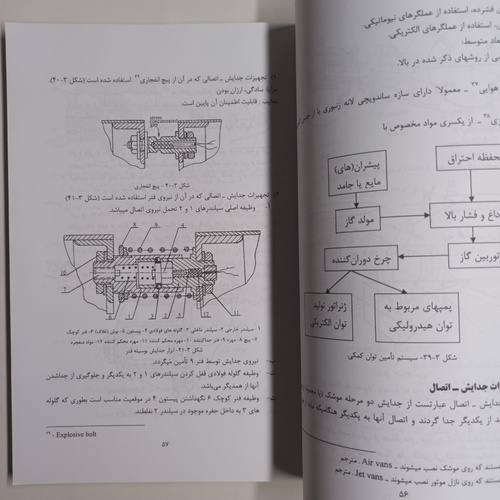 تجهیزات جدایش ـ اتصالی که در آن از پیچ انفجاری ۳۹ استفاده شده است (شکل ۳-۴۰).
مزایا سادگی، ارزان بودن.
معایب : قابلیت اطمینان آن پایین است.
شکل ۳-۴۰- پیچ انفجاری
تجهیزات جدایش ـ اتصالی که در آن از نیروی فنر استفاده شده است (شکل ۳-۴۱)
وظیفه اصلی سیلندرهای ۱ و ۲ تحمل نیروی اتصال میباشد.
۱- سیلندر خارجی ۲- سیلندر داخلی ۳- گلوله های فولادی ۴- پیستون ۵- بوش (غلاف) ۶- فنر کوچک
۷- پیچ ۸- مهره ۹- فنر جداکننده ۱۰- مهره محکم کننده ۱۱- مهره محکم کننده ۱۲- مواد منفجره
شکل ۳-۴۱- ابزار جدایش بوسیله فنر
نیروی جدایش توسط فنر ۹ تأمین میگردد.
وظیفه گلوله فولادی قفل کردن سیلندرهای ۱ و ۲ به یکدیگر و جلوگیری از جداشدن
آنها از همدیگر می‌باشد.
وظیفه فنر کوچک ۶ نگهداشتن پیستون ۴ در موقعیت مناسب است بطوری که گلوله
های ۳ به داخل حفره موجود در سیلندر ۲ نغلطند.
۳۹ - Explosive bolt
۵۷
فشرده، استفاده از عملگرهای نیوماتیکی.
استفاده از عملگرهای الکتریکی.
متوسط:
از روشهای ذکر شده در بالا.
هوایی ۳۷ ـ معمولاً دارای سازه ساندویچی لانه زنبوری یا از
۳۸ ـ از یکسری مواد مخصوص با
محفظه احتراق
پیشران(های)
مایع یا جامد
داغ و فشار بالا
مولد گاز
توربین گاز
چرخ دوران‌کننده
پمپهای مربوط به
توان هیدرولیکی
ژنراتور تولید
توان الکتریکی
شکل ۳-۳۹- سیستم تأمین توان کمکی.
جدایش ـ اتصال
جدایش ـ اتصال عبارتست از جدایش دو مرحله موشک
از یکدیگر جدا گردند و اتصال آنها به یکدیگر هنگامیکه
Air vans ـ هستند که روی موشک نصب میشوند ـ مترجم
Jet vans ـ هستند که روی نازل موتور نصب میشوند ـ مترجم
۵۶